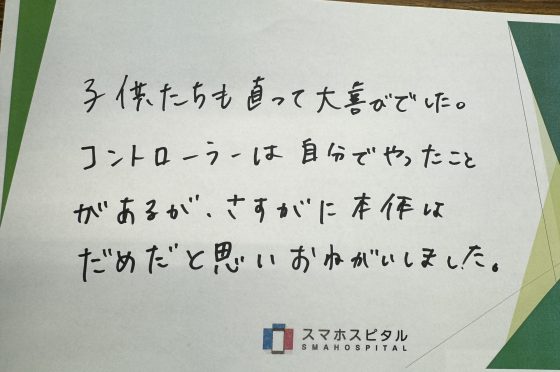 子供たちも直って大喜びでした。
コントローラーは自分でやったこと
があるが、さすがに本体は
だめだと思いおねがいしました。
スマホスピタル
SMAHOSPITAL